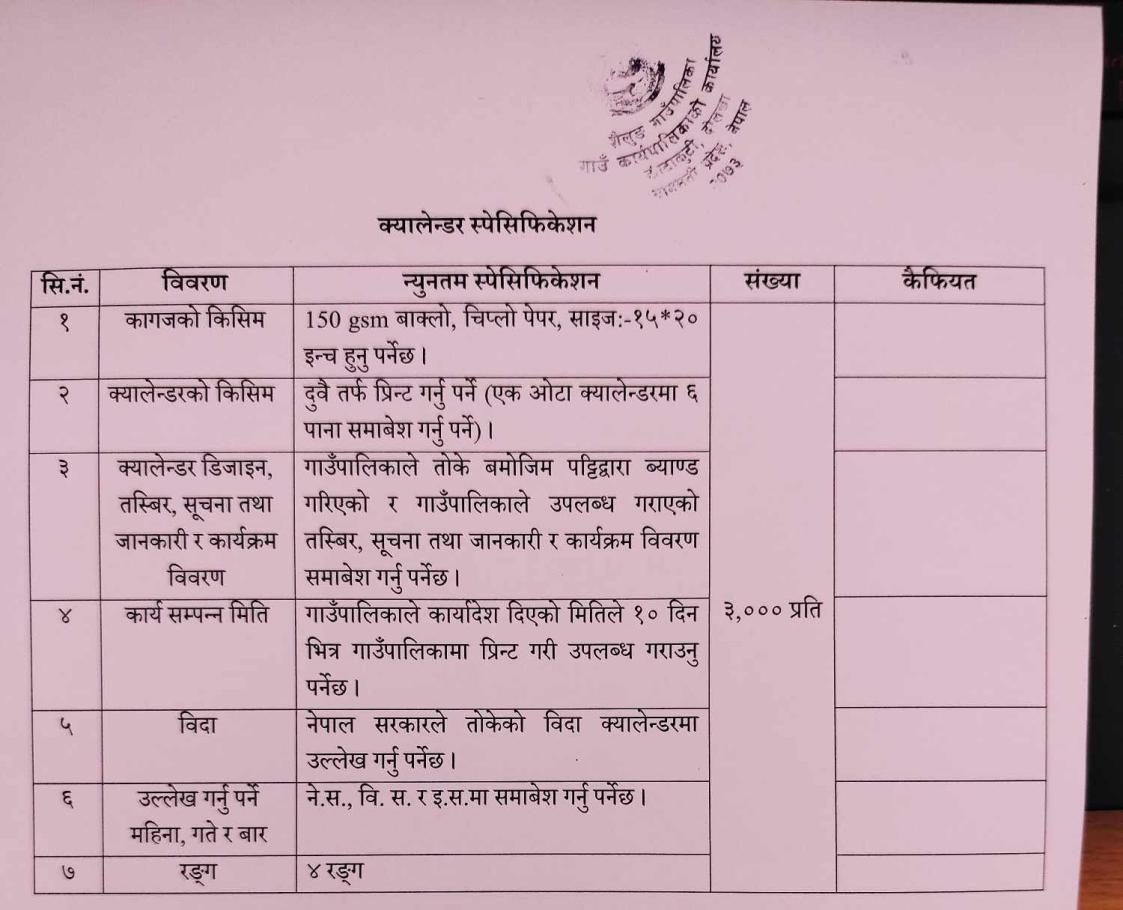 शैलुङ गाउँपालिका
गाउँ कार्यपालिकाको कार्यालय
दोलखा
प्रदेश, नेपाल
२०७३
क्यालेन्डर स्पेसिफिकेशन
सि.नं. विवरण न्युनतम स्पेसिफिकेशन संख्या कैफियत
१ कागजको किसिम 150 gsm बाक्लो, चिप्लो पेपर, साइज:-१५*२०
इन्च हुनु पर्नेछ ।
२ क्यालेन्डरको किसिम दुवै तर्फ प्रिन्ट गर्नु पर्ने (एक ओटा क्यालेन्डरमा ६
पाना समाबेश गर्नु पर्ने) ।
३ क्यालेन्डर डिजाइन, गाउँपालिकाले तोके बमोजिम पट्टिद्वारा ब्याण्ड
तस्बिर, सूचना तथा गरिएको र गाउँपालिकाले उपलब्ध गराएको
जानकारी र कार्यक्रम तस्बिर, सूचना तथा जानकारी र कार्यक्रम विवरण
विवरण समाबेश गर्नु पर्नेछ ।
४ कार्य सम्पन्न मिति गाउँपालिकाले कार्यादेश दिएको मितिले १० दिन ३,००० प्रति
भित्र गाउँपालिकामा प्रिन्ट गरी उपलब्ध गराउनु
पर्नेछ ।
५ विदा नेपाल सरकारले तोकेको विदा क्यालेन्डरमा
उल्लेख गर्नु पर्नेछ ।
६ उल्लेख गर्नु पर्ने ने.स., वि. स. र इ.स.मा समाबेश गर्नु पर्नेछ ।
महिना, गते र बार
७ रङ्ग ४ रङ्ग